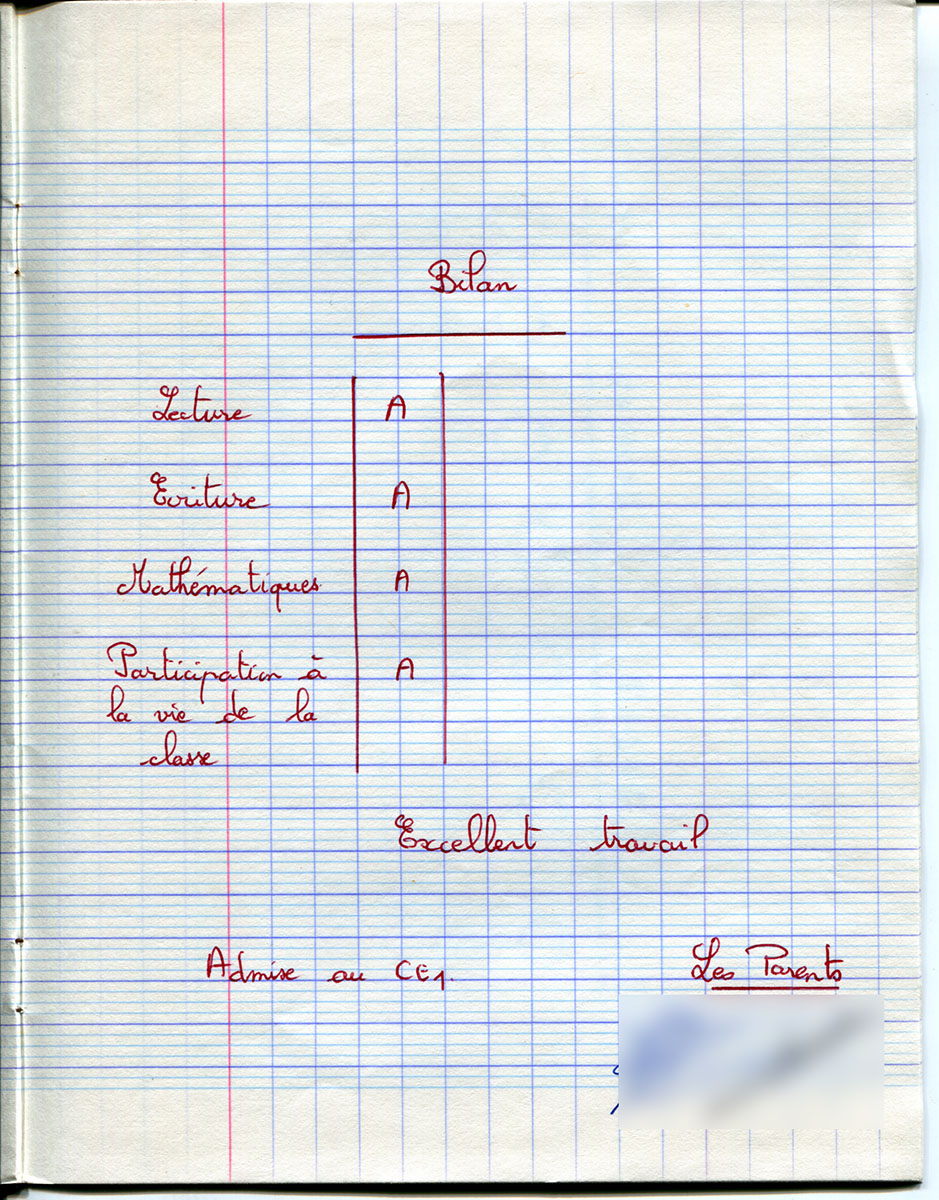 Bilan
Lecture A
Ecriture A
Mathématiques A
Participation à A
la vie de la
classe
Excellent travail
Admise au CE1.
Les Parents